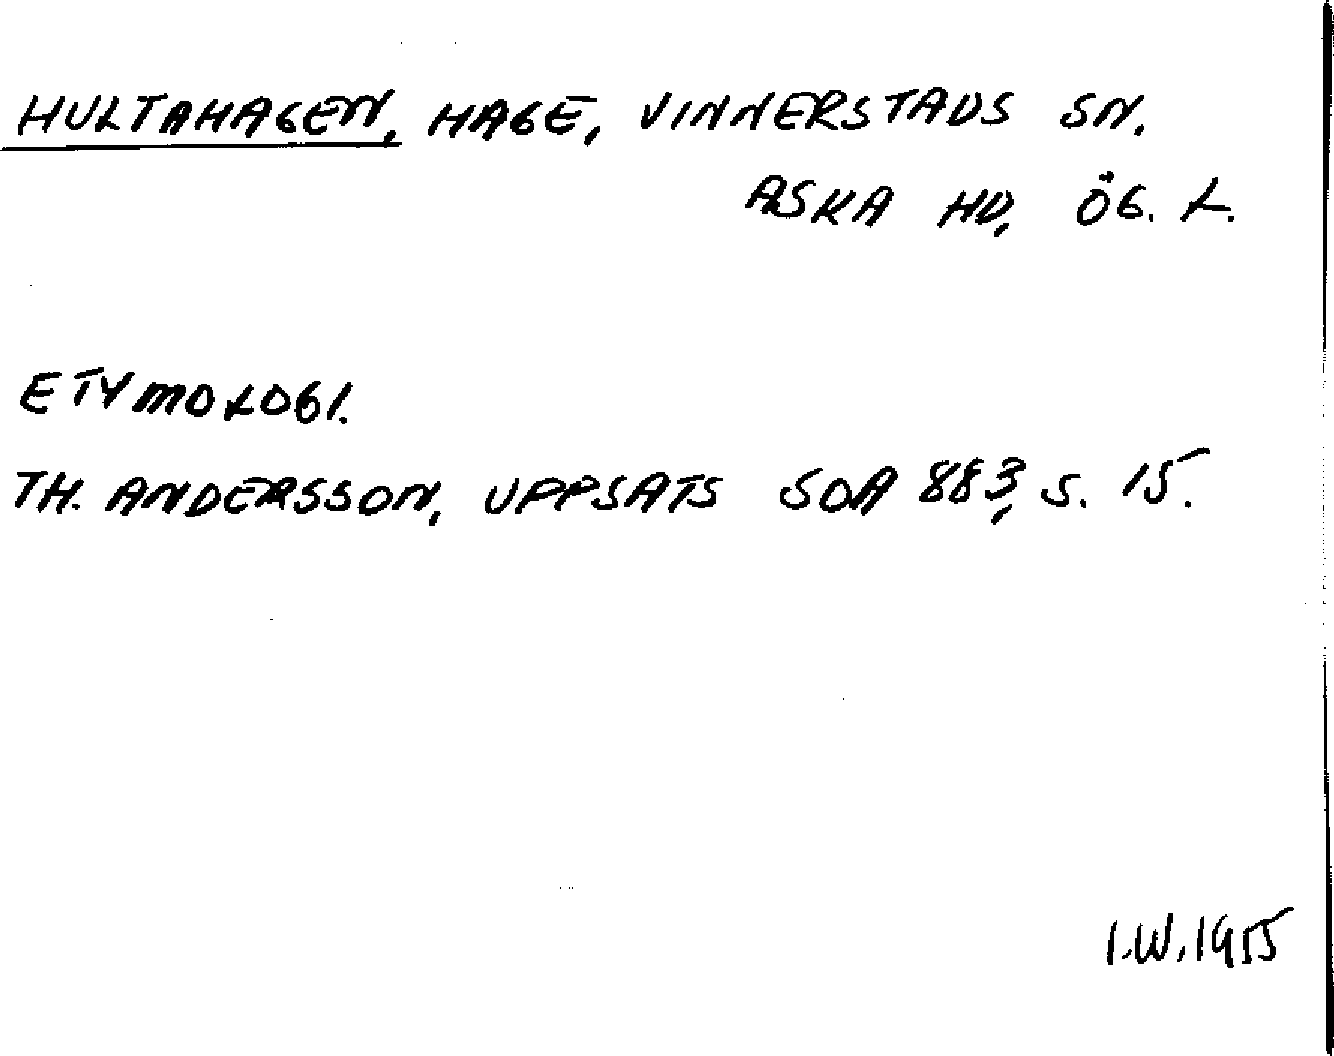 HULTAHAGEN, HAGE, VINNERSTADS SN.
ASKA HD, ÖG. L.
ETYMOLOGI.
TH. ANDERSSON, UPPSATS SOA 883, S. 15.
I.W. 1955